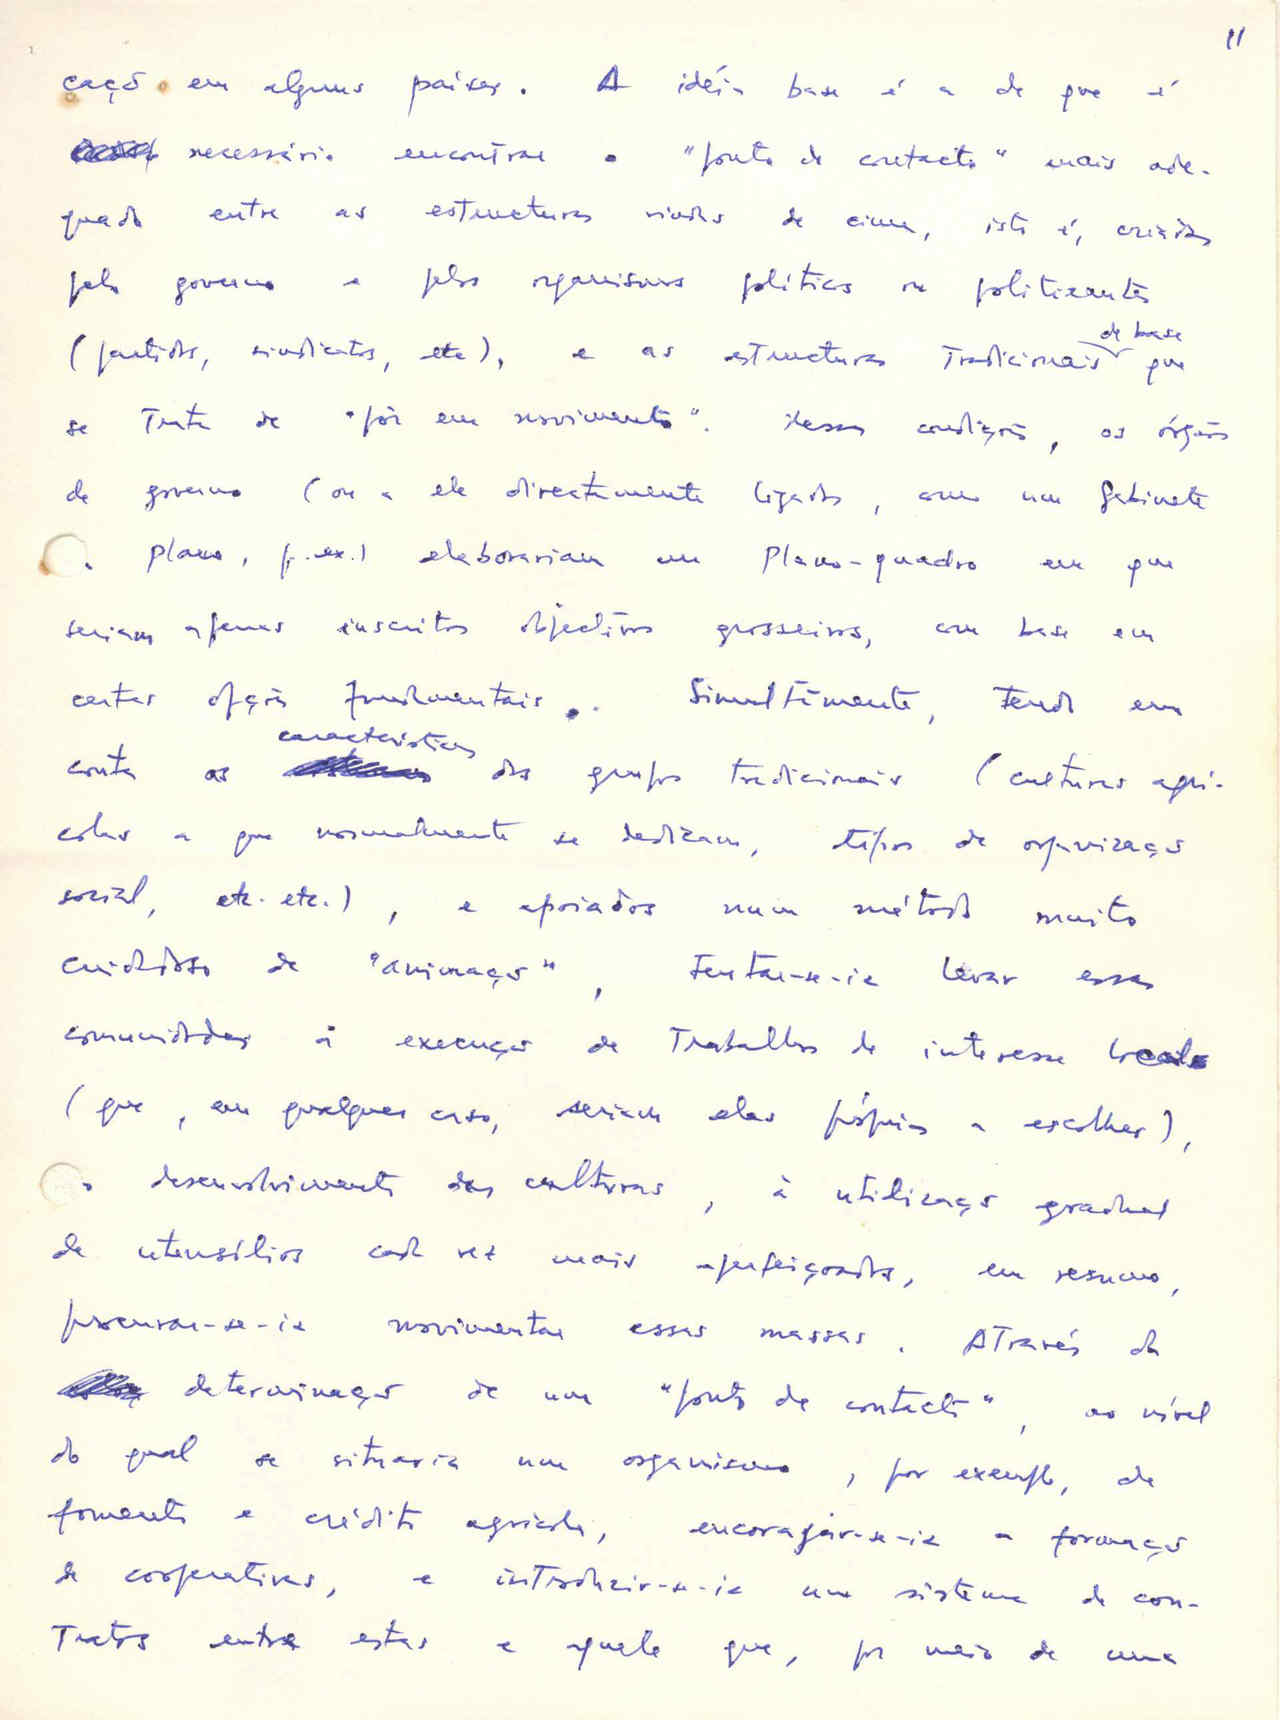 11
cação em alguns países. A idéia base é a de que é
necessário encontrar o "ponto de contacto" mais ade-
quado entre as estructuras vindas de cima, isto é, criadas
pelo governo e pelos organismos políticos ou politizantes
(partidos, sindicatos, etc), e as estructuras tradicionais de base que
se trata de "pôr em movimento". Nessas condições, os órgãos
de governo (ou a ele directamente ligados, como um Gabinete
do Plano, p. ex.) elaborariam um Plano-quadro em que
seriam apenas inscritos objectivos grosseiros, com base em
certas opções fundamentais. Simultâmente, tendo em
conta as características dos grupos tradicionais (culturas agrí-
colas a que normalmente se dedicam, tipos de organização
social, etc. etc.), e apoiados num método muito
cuidadoso de "animação", tentar-se-ia levar essas
comunidades à execução de trabalhos de interesse local
(que, em qualquer caso, seriam elas próprias a escolher),
o desenvolvimento das culturas, à utilização gradual
de utensílios cada vez mais aperfeiçoados, em resumo,
procurar-se-ia movimentar essas massas. Através da
determinação de um "ponto de contacto", ao nível
do qual se situaria um organismo, por exemplo, de
fomento e crédito agrícola, encorajar-se-ia a formação
de cooperativas, e introduzir-se-ia um sistema de con-
tratos entre estas e aquele que, por meio de uma